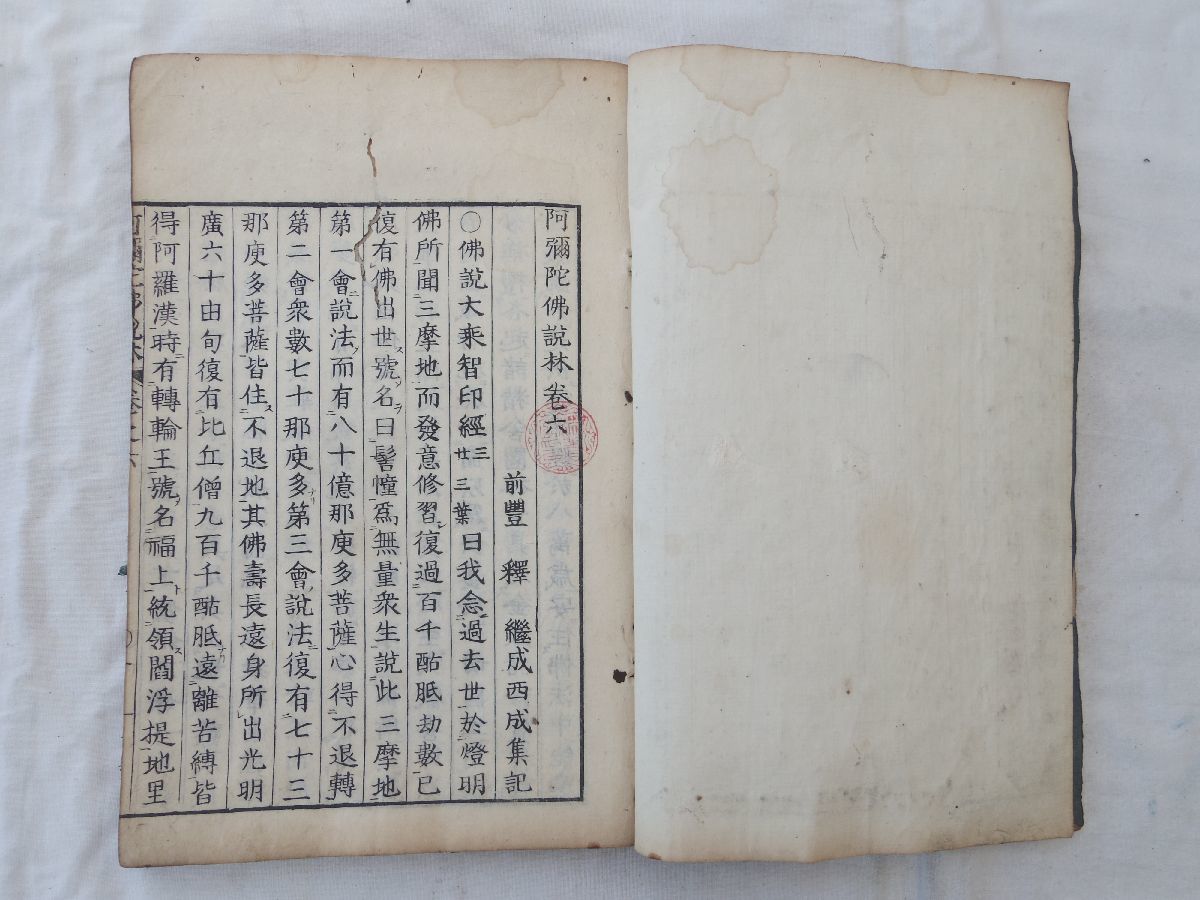 阿彌陀佛說林卷六
前豐 釋 繼成西成集記
〇佛說大乘智印經三廿三葉曰我念過去世於燈明
佛所聞三摩地而發意修習復過百千酤胝劫數已
復有佛出世號名曰髻幢爲無量衆生說此三摩地
第一會說法而有八十億那庾多菩薩心得不退轉
第二會衆數七十那庾多第三會說法復有七十三
那庾多菩薩皆住不退地其佛壽長遠身所出光明
廣六十由旬復有比丘僧九百千酤胝遠離苦縛皆
得阿羅漢時有轉輪王號名福上統領閻浮提地里
阿彌陀佛說林 卷之六